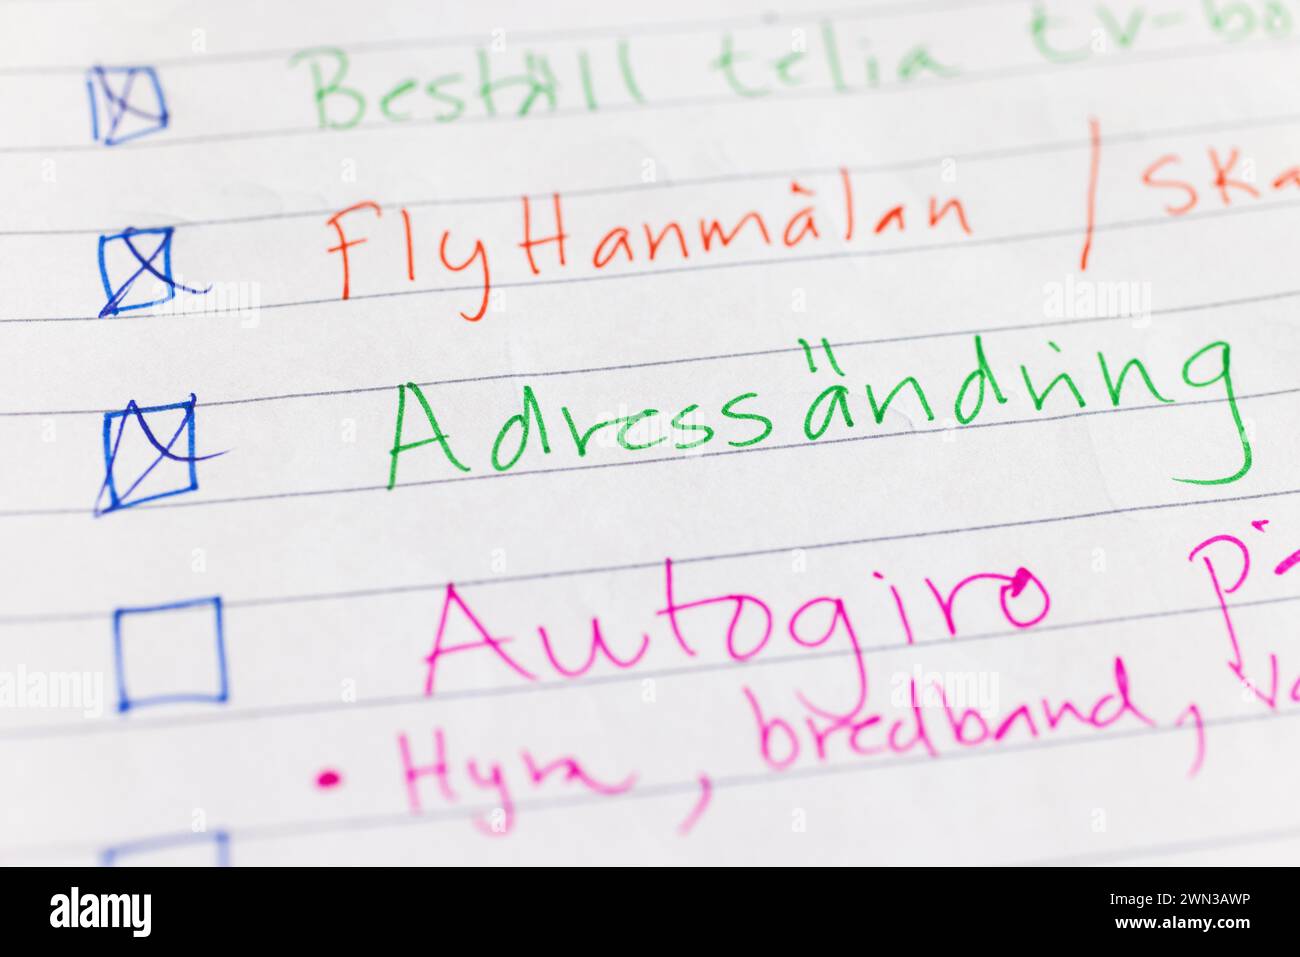 Beställ telia tv-bo
FlyHanmälan / ska
Adressändring
Autogiro på
• Hyra, bredband,
alamy
Image ID: 2WN3AWP
www.alamy.com